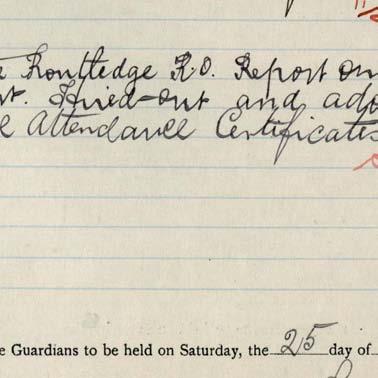 Routledge R.O. Report on
st. Fried-out and ado
l Attendance Certificates
e Guardians to be held on Saturday, the 25 day of